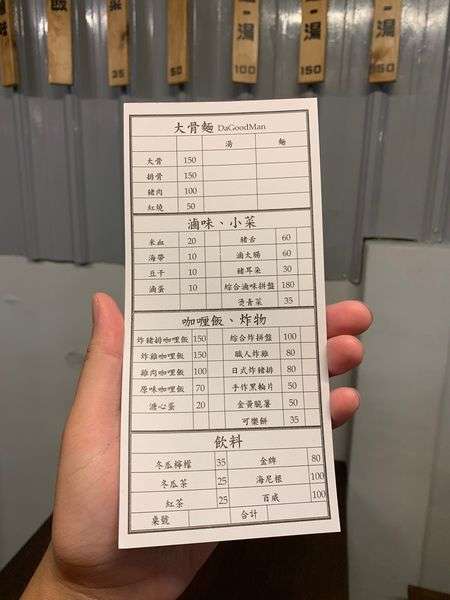 飯
35
50
湯
100
湯
150
湯
150
大骨麵 DaGoodMan
湯 麵
大骨 150
排骨 150
豬肉 100
紅燒 50
滷味、小菜
米血 20 豬舌 60
海帶 10 滷大腸 60
豆干 10 豬耳朵 30
滷蛋 10 綜合滷味拼盤 180
燙青菜 35
咖哩飯、炸物
炸豬排咖哩飯 150 綜合炸拼盤 100
炸雞咖哩飯 150 職人炸雞 80
雞肉咖哩飯 100 日式炸豬排 80
原味咖哩飯 70 手作黑輪片 50
溏心蛋 20 金黃脆薯 50
可樂餅 35
飲料
冬瓜檸檬 35 金牌 80
冬瓜茶 25 海尼根 100
紅茶 25 百威 100
桌號 合計